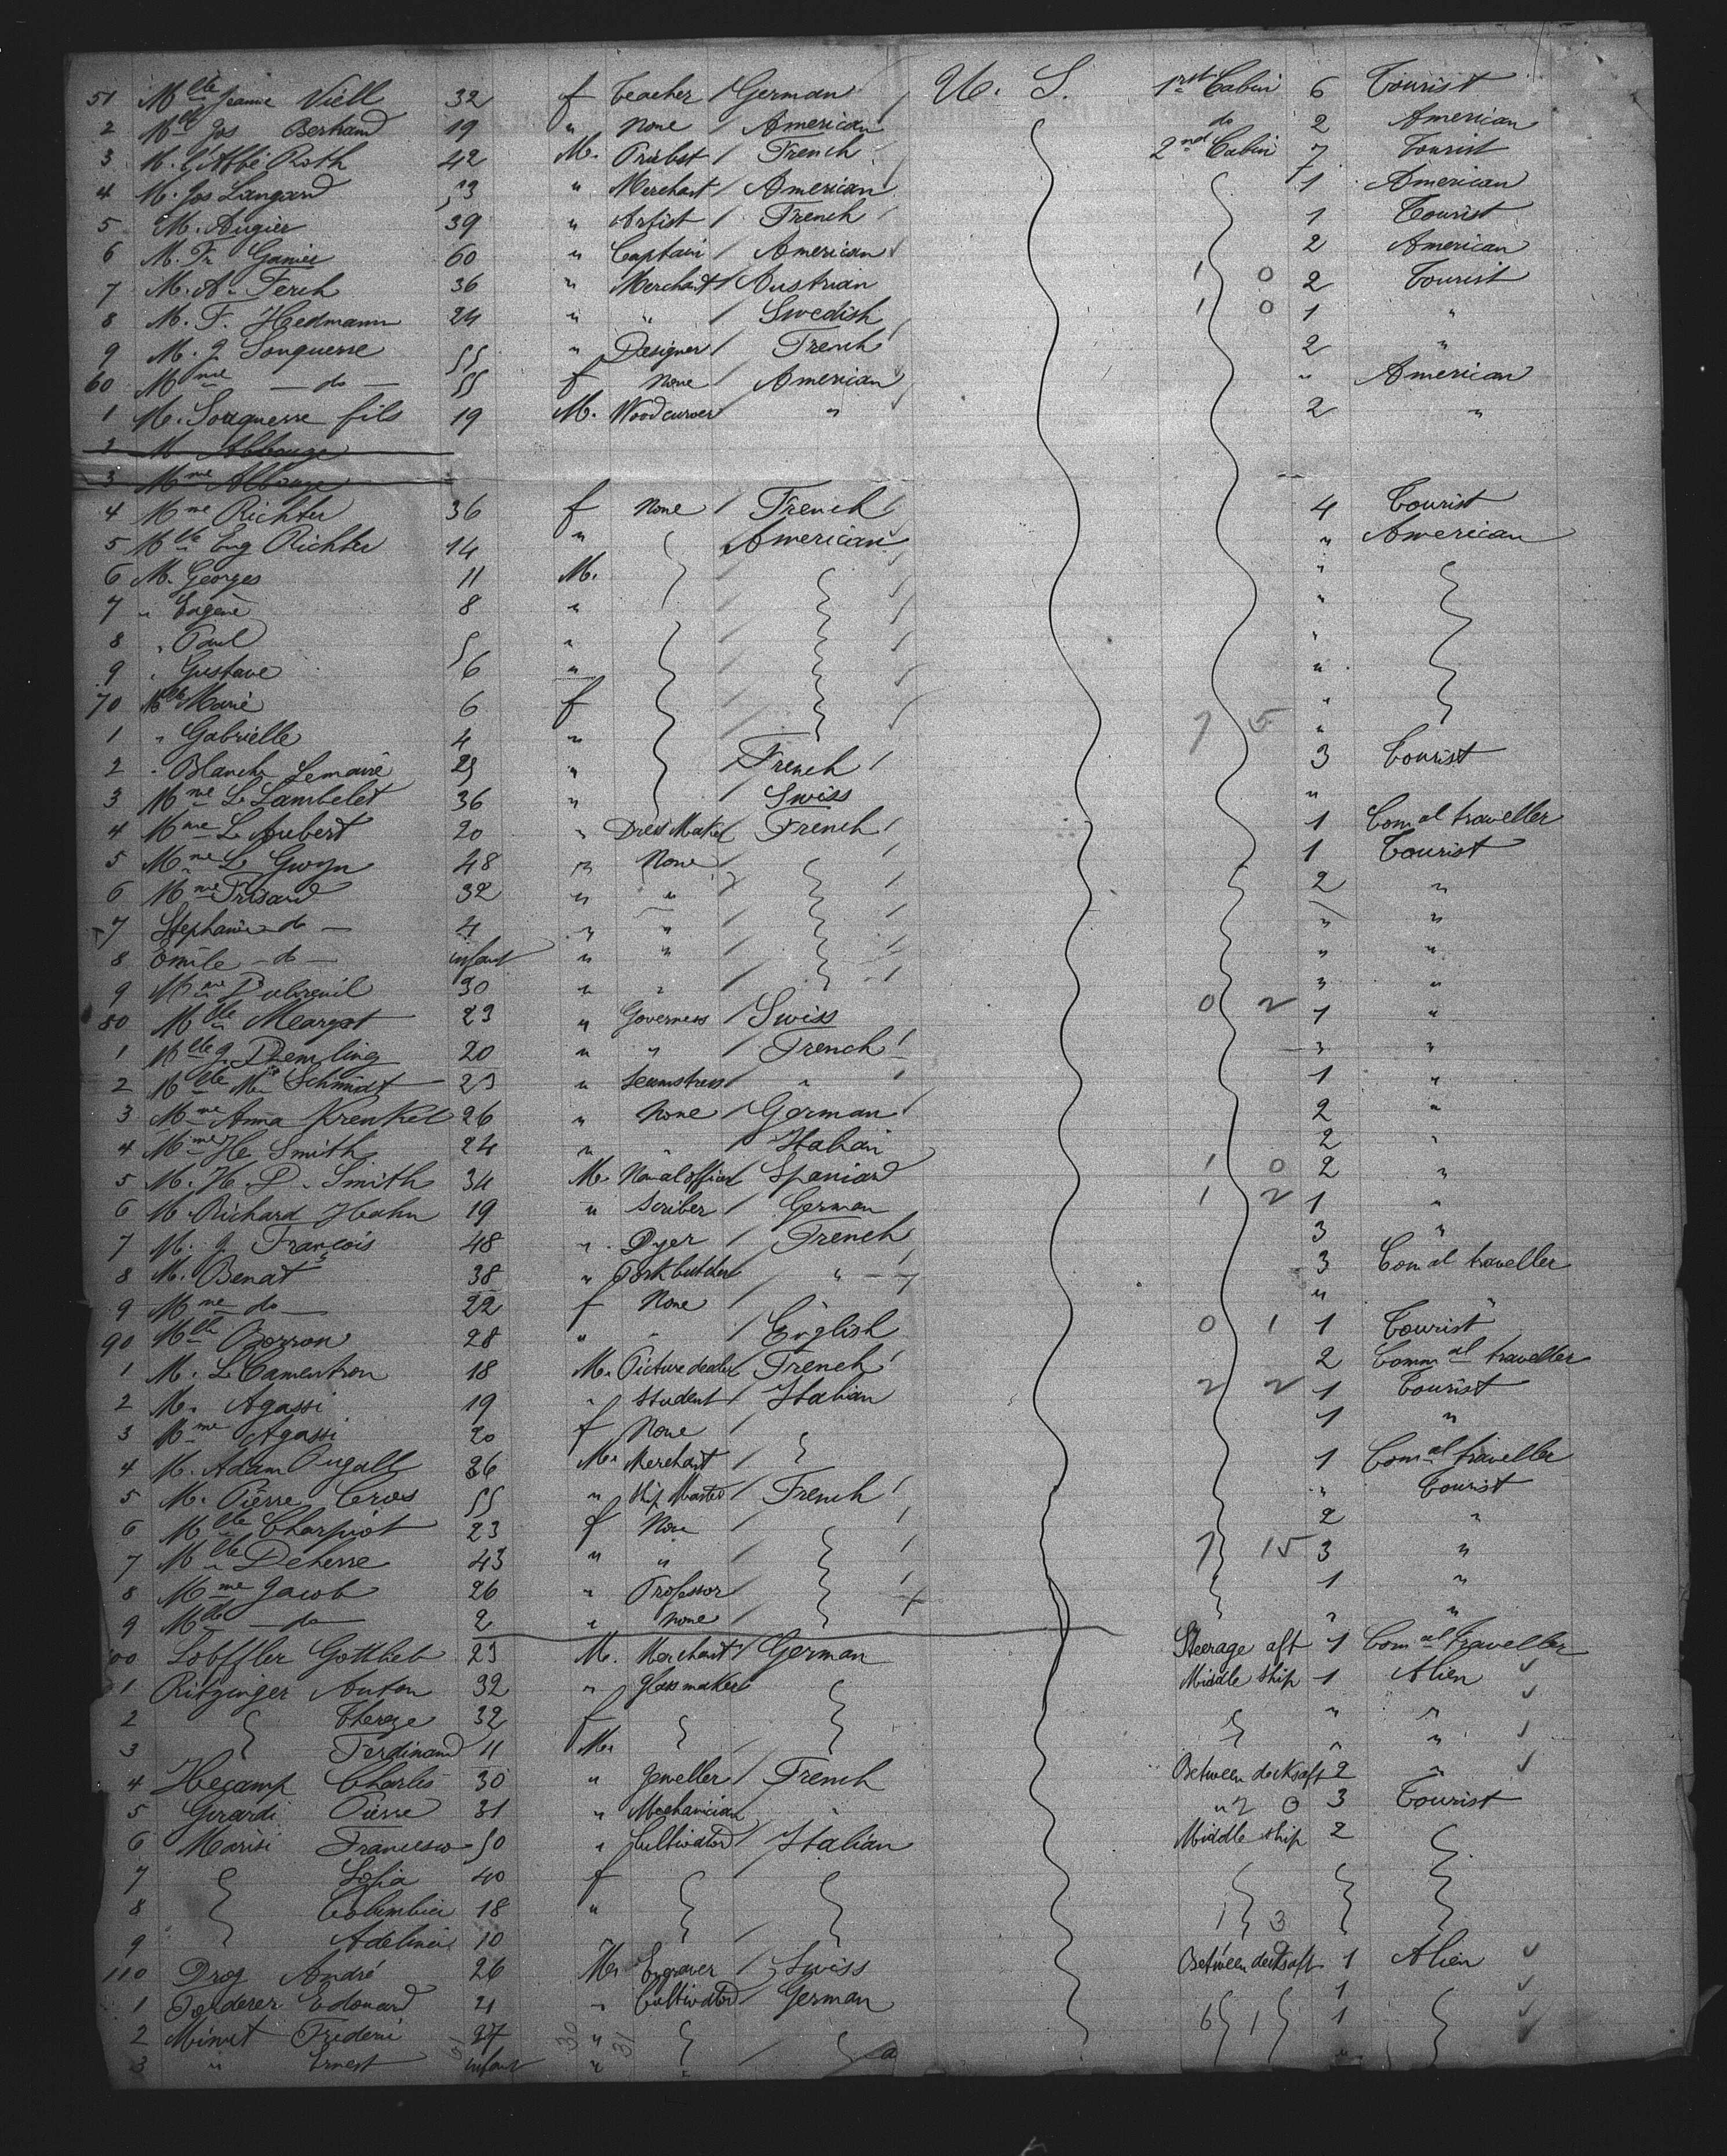 51 Mlle Jeanne Viell 32 f Teacher / German / U. S. 1rst Cabin 6 Tourist
2 Mlle Jos Bertrand 19 " None / American do 2 American
3 M. l'Abbé Roth 42 M. Priest / French 2nd Cabin 7 Tourist
4 M. Jos Langard 53 " Merchant / American 1 American
5 M. Augier 39 " Artist / French / 1 Tourist
6 M. Fr Garnier 60 " Captain / American 2 American
7 M. A. Ferch 36 " Merchant / Austrian 1 0 2 Tourist
8 M. F. Hedmann 24 " " / Swedish 1 0 1 "
9 M. J. Souquesse 55 " Designer / French / 2 "
60 Mme — do — 55 f None / American " American
1 M. Souquesse fils 19 M. Woodcurver " 2 "
2 M Abbouge
3 Mme Abbouge
4 Mme Richter 36 f None / French / 4 Tourist
5 Mlle Eug Richter 14 " American " American
6 M. Georges 11 M. / "
7 " Eugène 8 " / "
8 " Paul 5 " / "
9 " Gustave 6 " / "
70 Mlle Marie 6 f / "
1 " Gabrielle 4 " / 7 5 "
2 " Blanche Lemaire 23 " / French / 3 Tourist
3 Mme L Lambelet 36 " / Swiss "
4 Mme L Aubert 20 " Dress Maker French / 1 Comal traveller
5 Mme L Gwyn 48 " None / 1 Tourist
6 Mme Frisard 32 " " / 2 "
7 Stephanie do — 4 " " / " "
8 Emile — do — infant " " / " "
9 Mme Dubreuil 30 " " / " "
80 Mlle Margot 23 " Governess / Swiss 0 2 1 "
1 Mlle J. Demling 20 " " / French / " "
2 Mlle Mie Schmidt 23 " Seamstress / " 1 "
3 Mme Anna Krenkel 26 " None / German / 2 "
4 Mme He Smith 24 " " / Italian 2 "
5 M. H. D. Smith 34 M. Naval officer / Spaniard 1 0 2 "
6 M. Richard Hahn 19 " Scriber / German 1 2 1 "
7 M. J. François 48 " Dyer / French 3 "
8 M. Benat 38 " Porkbutcher / " 3 Comal traveller
9 Mme — do — 22 f None / " "
90 Mlle Borron 28 " " / English 0 1 1 Tourist
1 M. L Camentron 18 M. Picture dealer / French / 2 Commal traveller
2 M. Agassi 19 " Student / Italian 2 2 1 Tourist
3 Mme Agassi 20 f None / 1 "
4 M. Adam 26 M. Merchant / 1 Comal traveller
5 M. Pierre Cros 55 " Ship Master / French / " Tourist
6 Mlle Charpiot 23 f None / 2 "
7 Mlle Deherre 43 " " / 7 15 3 "
8 Mme Jacob 26 " Professor / 1 "
9 Mlle — do — 2 " None / " "
100 Lobffler Gottlieb 23 M. Merchant / German Steerage aft 1 Comal traveller
1 Ritzinger Anton 32 " Glassmaker Middle ship 1 Alien ✓
2 Thereze 32 f / " " ✓
3 Ferdinand 11 M. / " " ✓
4 Hecamp Charles 30 " Jeweller / French Between decksaft 2 " ✓
5 Girardi Pierre 31 " Mechanician " " 2 0 3 Tourist
6 Marisi Francesco 50 " Cultivator / Italian Middle ship 2
7 Sofia 40 f
8 Columbia 18 " 1 3
9 Adelina 10
110 Droz André 26 M. Engraver / Swiss Between decksaft 1 Alien ✓
1 Forderer Edouard 21 " Cultivator German 1 ✓
2 Minut Frederic 27 " 6 1 1 ✓
3 " Ernest infant " / "